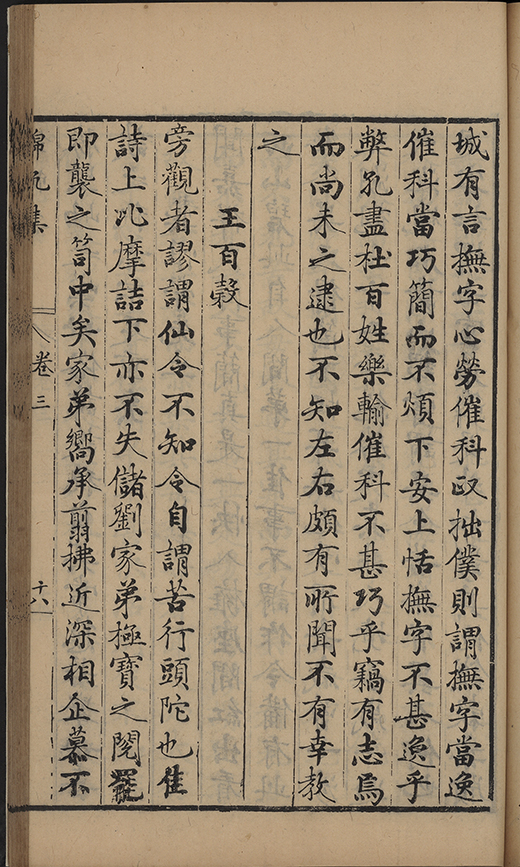 城有言撫字心勞催科政拙僕則謂撫字當逸
催科當巧簡而不煩下安上恬撫字不甚逸乎
弊孔盡杜百姓樂輸催科不甚巧乎竊有志焉
而尚未之逮也不知左右頗有所聞不有幸教
之
王百穀
旁觀者謬謂仙令不知令自謂苦行頭陀也佳
詩上兆摩詰下亦不失儲劉家弟極寶之閱罷
即襲之笥中矣家弟嚮承翦拂近深相企慕不
錦凡集
卷三
十八